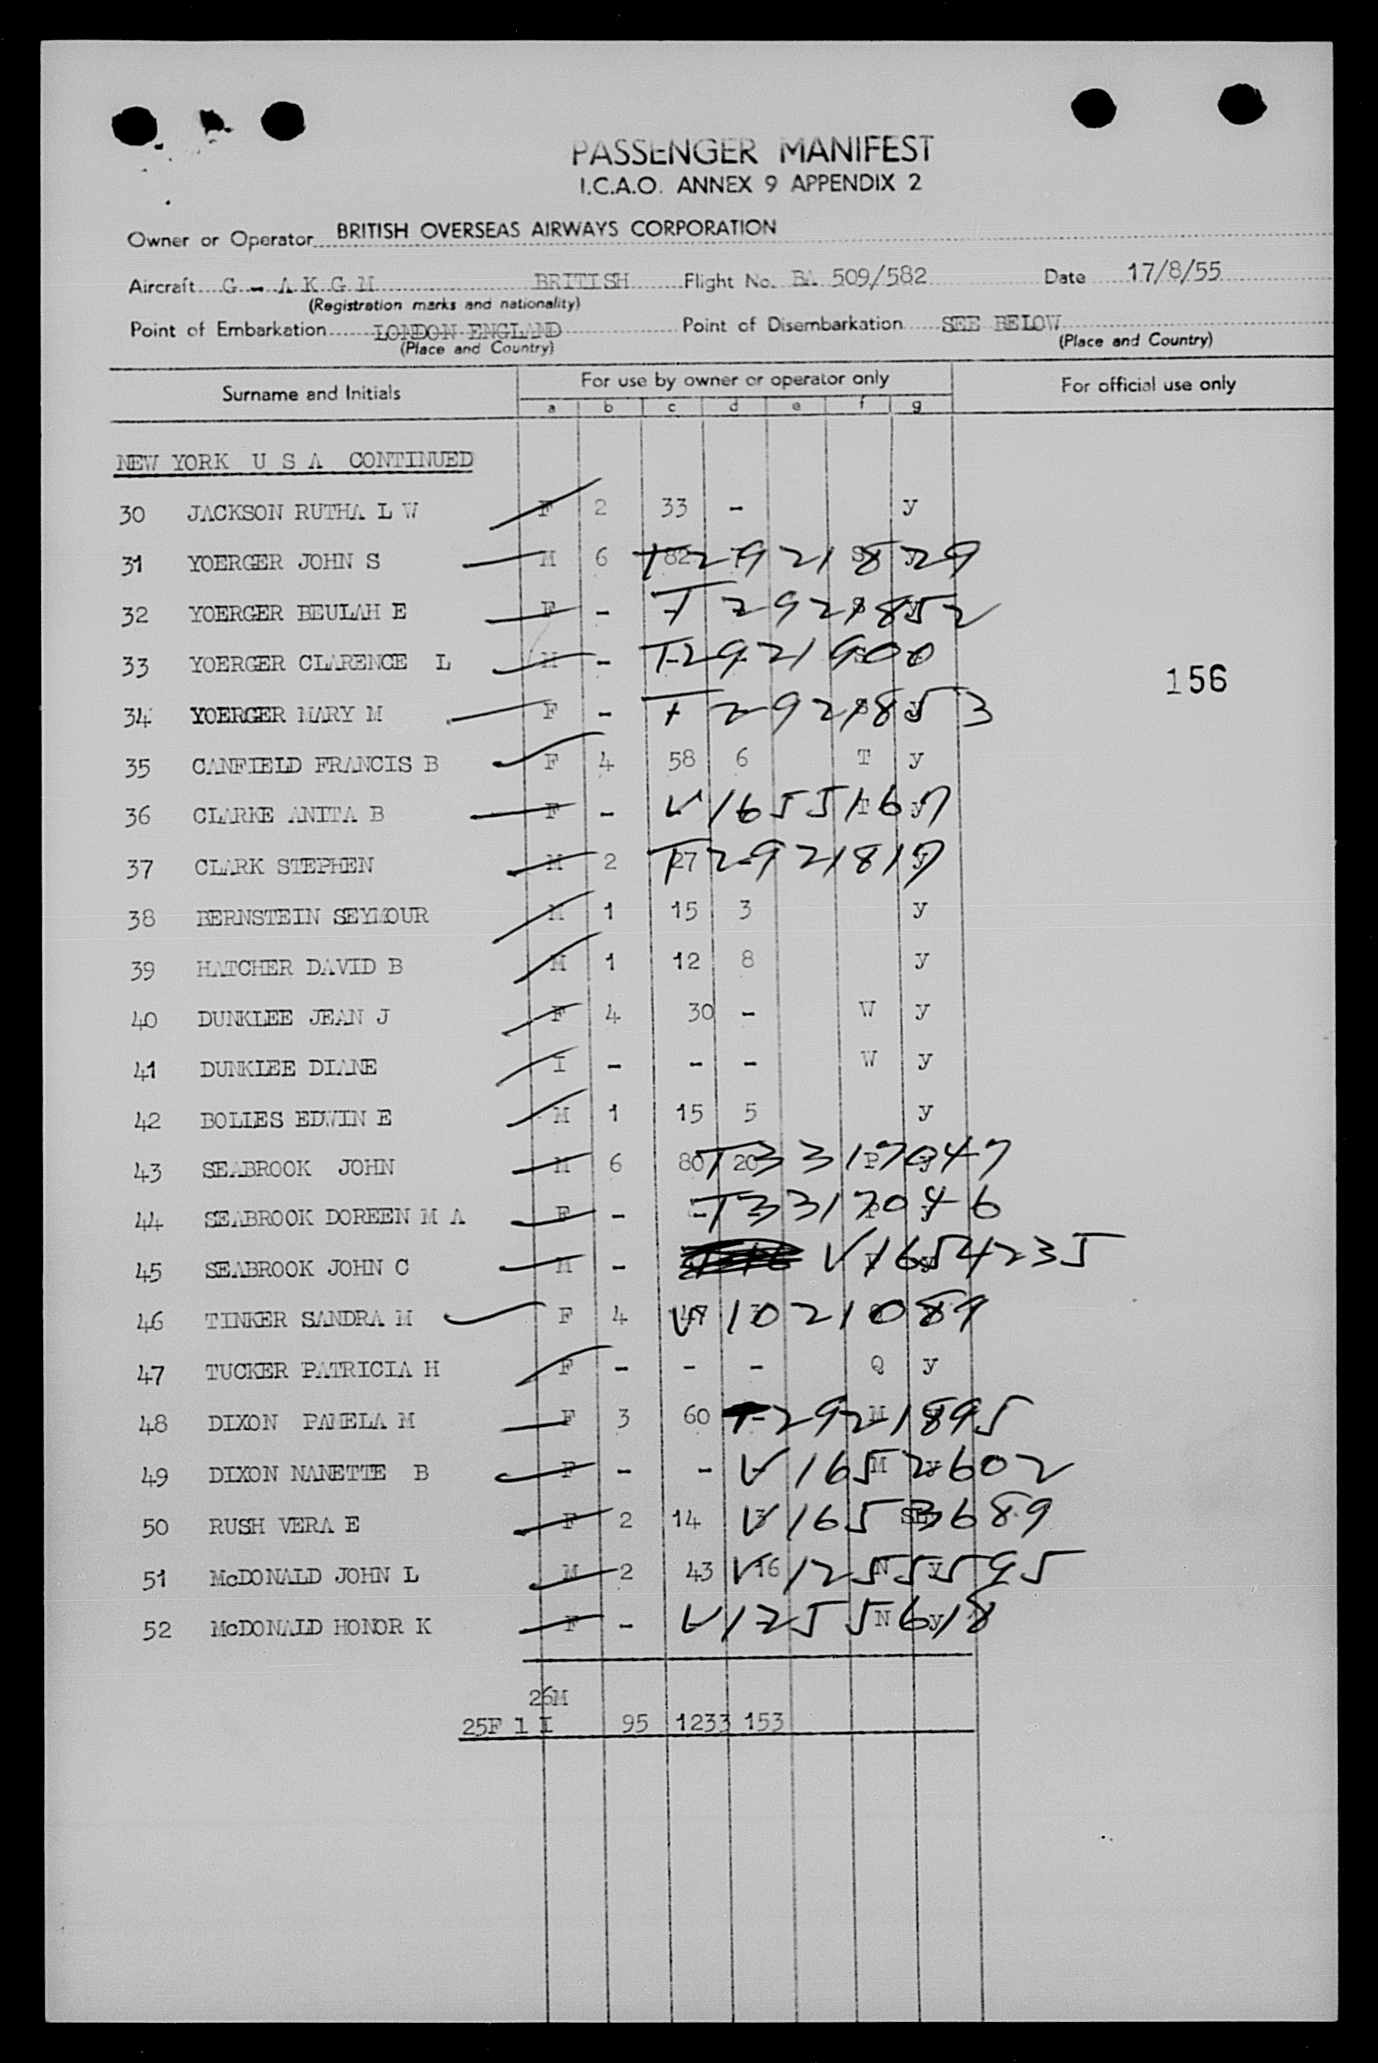 PASSENGER MANIFEST
I.C.A.O. ANNEX 9 APPENDIX 2
Owner or Operator BRITISH OVERSEAS AIRWAYS CORPORATION
Aircraft G - A K G M BRITISH Flight No. BA 509/582 Date 17/8/55
(Registration marks and nationality)
Point of Embarkation LONDON ENGLAND Point of Disembarkation SEE BELOW
(Place and Country) (Place and Country)
Surname and Initials For use by owner or operator only For official use only
a b c d e f g
NEW YORK U S A CONTINUED
30 JACKSON RUTHA L W F 2 33 - y
31 YOERGER JOHN S M 6 82 T2921829
32 YOERGER BEULAH E F - T2921852
33 YOERGER CLARENCE L M - T2921900
156
34 YOERGER MARY M F - T2921853
35 CANFIELD FRANCIS B F 4 58 6 T y
36 CLARKE ANITA B F - V1655167 T y
37 CLARK STEPHEN M 2 27 T2921817 y
38 BERNSTEIN SEYMOUR M 1 15 3 y
39 HATCHER DAVID B M 1 12 8 y
40 DUNKLEE JEAN J F 4 30 - W y
41 DUNKLEE DIANE I - - - W y
42 BOLLES EDWIN E M 1 15 5 y
43 SEABROOK JOHN M 6 80 20 T3317047 P y
44 SEABROOK DOREEN M A F - - T3317046 P y
45 SEABROOK JOHN C M - V1654235
46 TINKER SANDRA M F 4 47 V1021089
47 TUCKER PATRICIA H F - - - Q y
48 DIXON PAMELA M F 3 60 - T2921895 M
49 DIXON NANETTE B F - - - V1652602 M y
50 RUSH VERA E F 2 14 3 V1653689 SE
51 McDONALD JOHN L M 2 43 16 V1255595 N y
52 McDONALD HONOR K F - V1255618 N y
26M
25F 1 I 95 1233 153